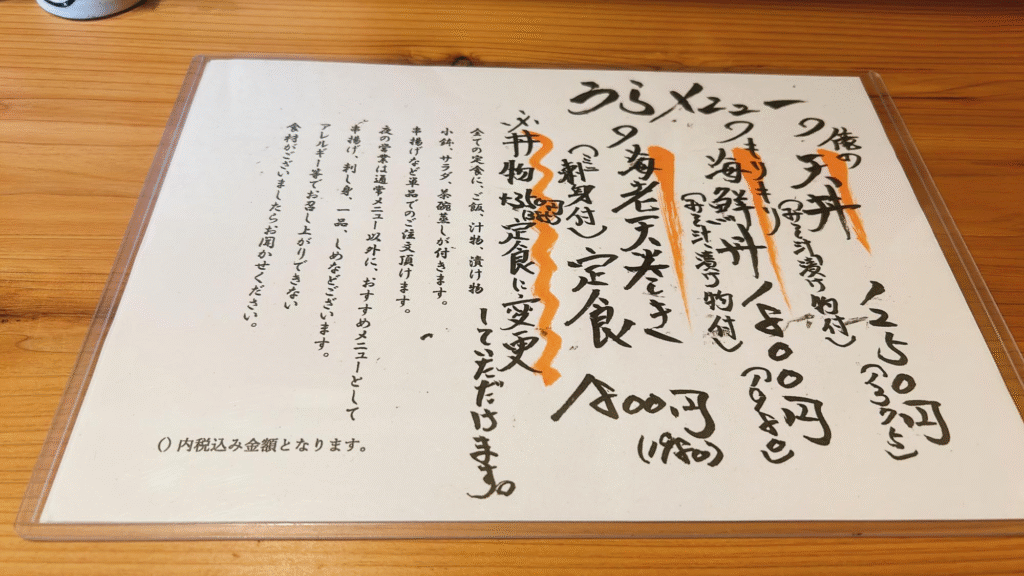 うらメニュー
俺の
天丼
(みそ汁漬け物付)
1250円
(1375)
キリキリ
海鮮丼
(みそ汁漬け物付)
1800円
(1980)
海老天巻き
(ミニ刺身付)
定食
1800円
(1980)
※丼物は定食に変更
していただけます。
全ての定食に、ご飯、汁物、漬け物
小鉢、サラダ、茶碗蒸しが付きます。
串揚げなど単品でのご注文頂けます。
夜の営業は通常メニュー以外に、おすすめメニューとして
串揚げ、刺し身、一品、しめなどございます。
アレルギー等でお召し上がりできない
食材がございましたらお聞かせください。
()内税込み金額となります。